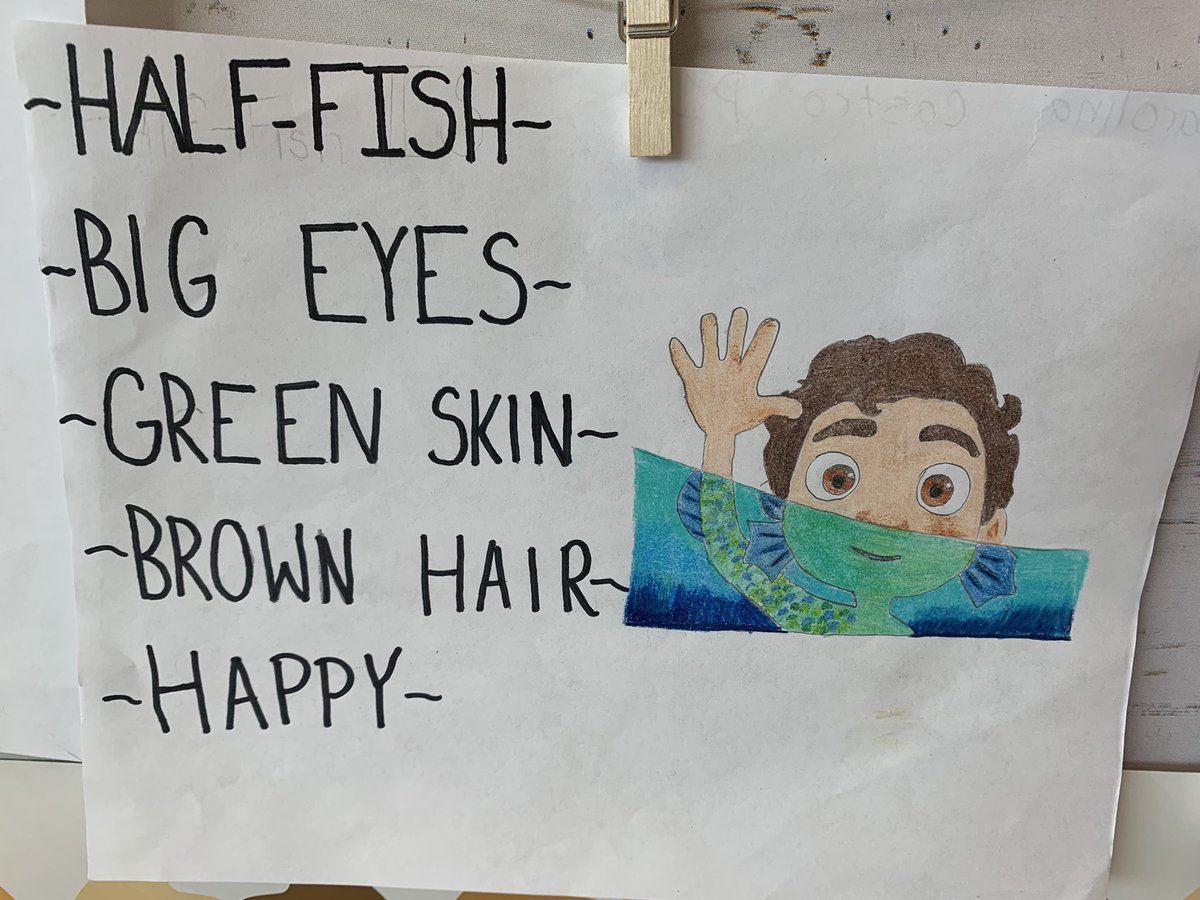 ~HALF-FISH~
~BIG EYES~
~GREEN SKIN~
~BROWN HAIR~
~HAPPY~